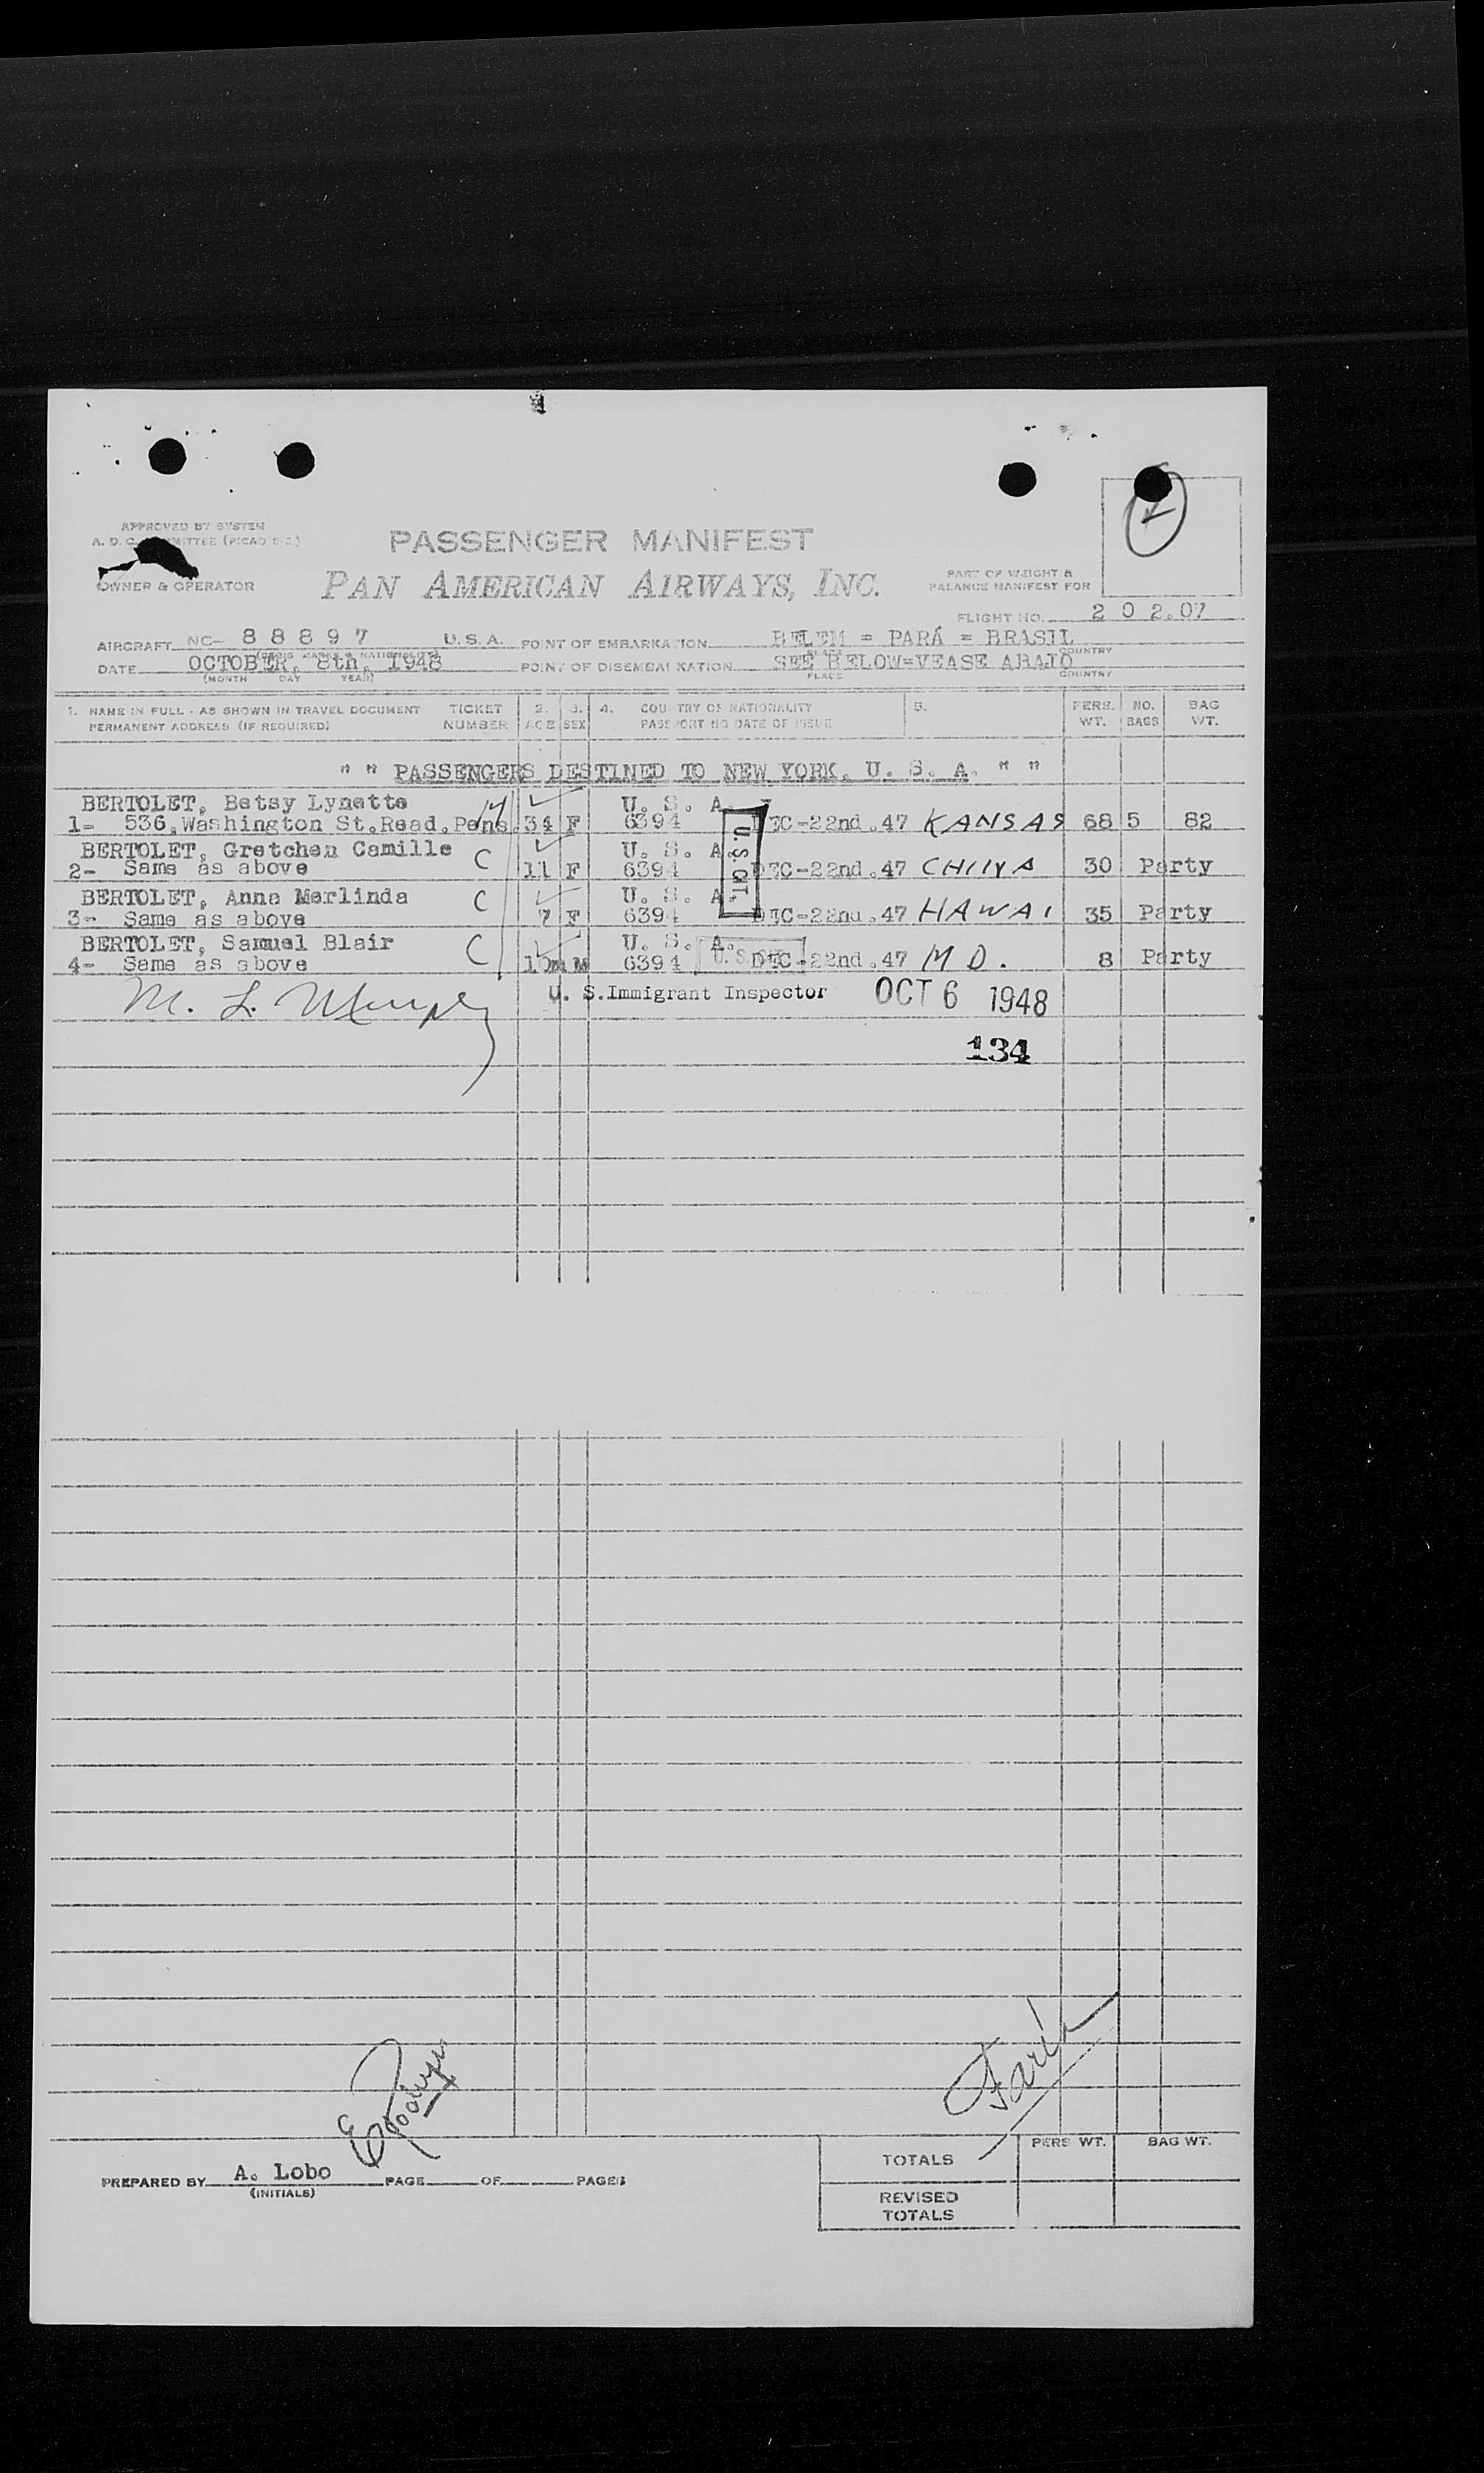 APPROVED BY SYSTEM
A. D. C. (PICAO S-2)
OWNER & OPERATOR
PASSENGER MANIFEST
PAN AMERICAN AIRWAYS, INC.
PART OF WEIGHT &
BALANCE MANIFEST FOR
FLIGHT NO. 2 0 2.07
AIRCRAFT NC- 8 8 8 9 7 U.S.A. POINT OF EMBARKATION BELEM = PARÁ = BRASIL
PLACE COUNTRY
DATE OCTOBER, 8th, 1948 POINT OF DISEMBARKATION SEE BELOW=VEASE ABAJO
(MONTH DAY YEAR) PLACE COUNTRY
1. NAME IN FULL - AS SHOWN IN TRAVEL DOCUMENT TICKET 2. 3. 4. COUNTRY OF NATIONALITY 5. PERS. NO. BAG
PERMANENT ADDRESS (IF REQUIRED) NUMBER AGE SEX PASSPORT NO DATE OF ISSUE WT. BAGS WT.
" " PASSENGERS DESTINED TO NEW YORK, U. S. A. " "
BERTOLET, Betsy Lynette M U. S. A.
1- 536,Washington St.Read.Pens. 34 F 6394 DEC-22nd.47 KANSAS 68 5 82
BERTOLET, Gretchen Camille C U. S. A
2- Same as above 11 F 6394 DEC-22nd.47 CHINA 30 Party
BERTOLET, Anna Merlinda C U. S. A
3- Same as above 7 F 6394 DEC-22nd.47 HAWAI 35 Party
BERTOLET, Samuel Blair C U. S. A.
4- Same as above 10m M 6394 DEC-22nd.47 MD. 8 Party
U.S.CIT.
U.S.CIT.
M. L. Murphy U. S.Immigrant Inspector OCT 6 1948
134
PREPARED BY A. Lobo PAGE OF PAGES
(INITIALS)
PERS WT. BAG WT.
TOTALS
REVISED
TOTALS